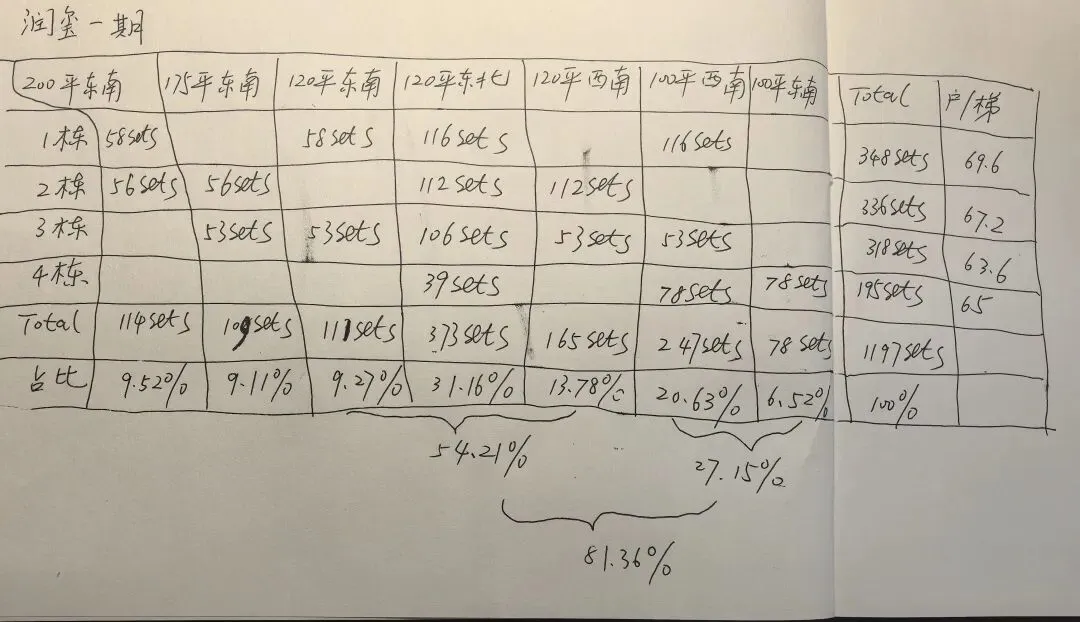 润玺一期
200平东南 175平东南 120平东南 120平东北 120平西南 100平西南 100平东南 Total 户/梯
1栋 58sets 58sets 116sets 116sets 348sets 69.6
2栋 56sets 56sets 112sets 112sets 336sets 67.2
3栋 53sets 53sets 106sets 53sets 53sets 318sets 63.6
4栋 39sets 78sets 78sets 195sets 65
Total 114sets 109sets 111sets 373sets 165sets 247sets 78sets 1197sets
占比 9.52% 9.11% 9.27% 31.16% 13.78% 20.63% 6.52% 100%
54.21% 27.15%
81.36%